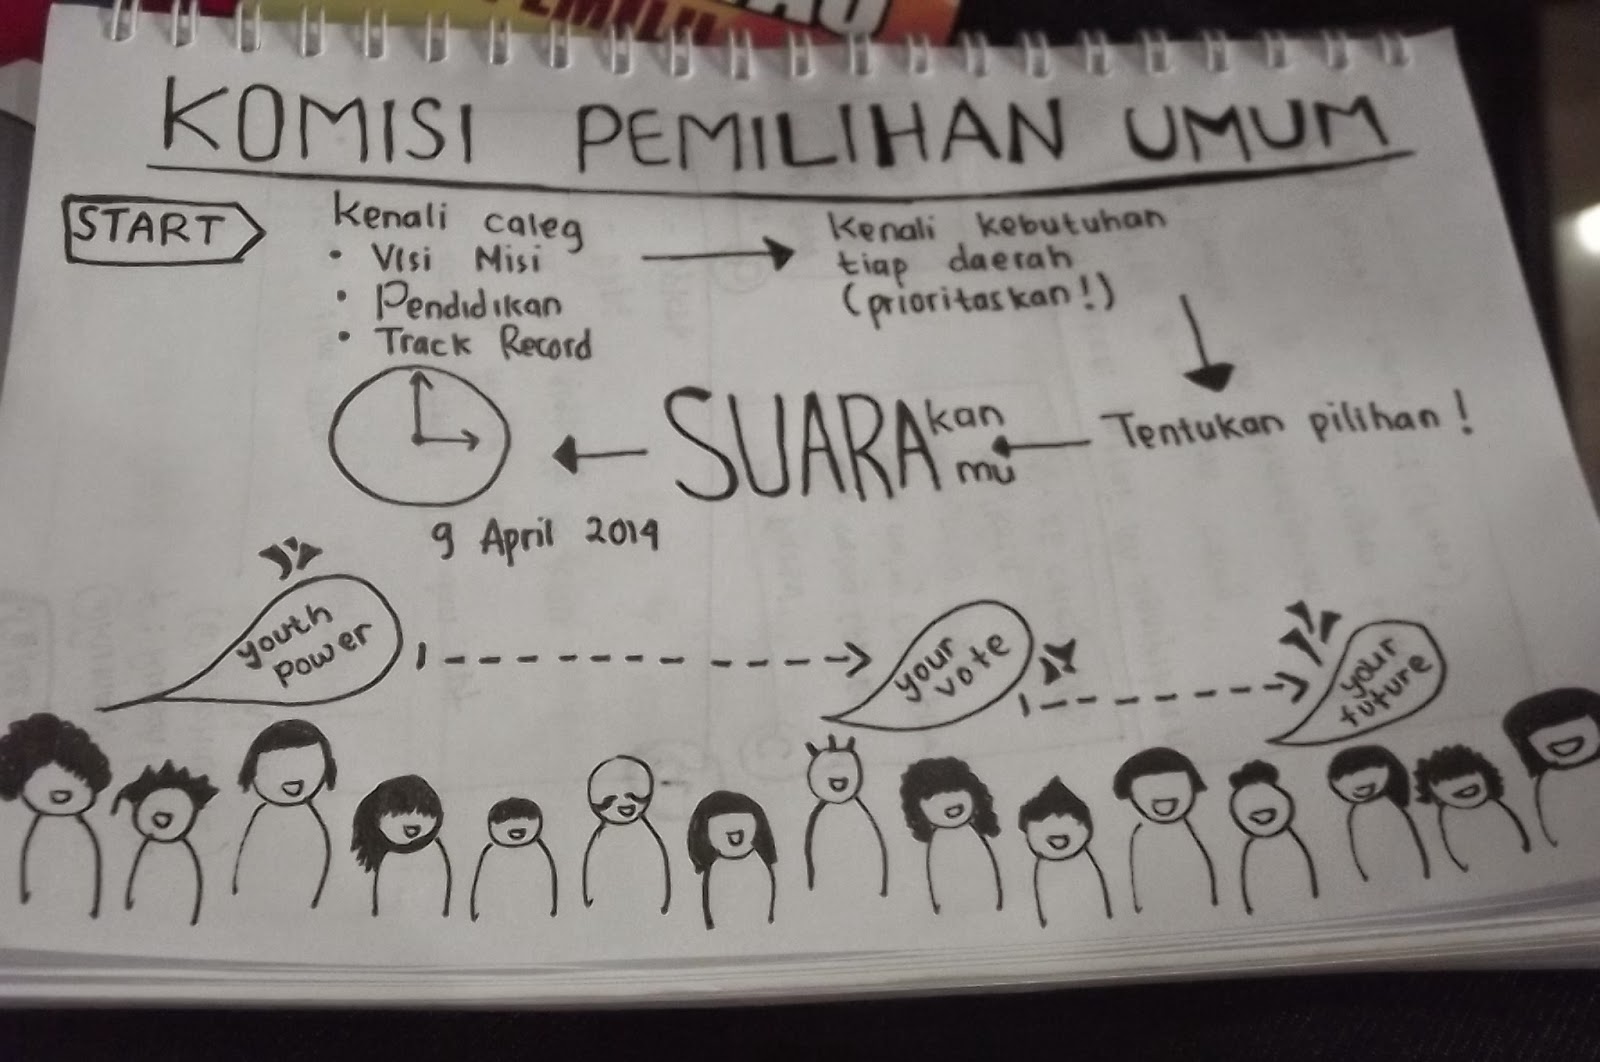 PEMILIH
KOMISI PEMILIHAN UMUM
START
Kenali caleg
• Visi Misi
• Pendidikan
• Track Record
Kenali kebutuhan
tiap daerah
(prioritaskan!)
Tentukan pilihan!
SUARAkan
mu
9 April 2014
youth
power
your
vote
your
future